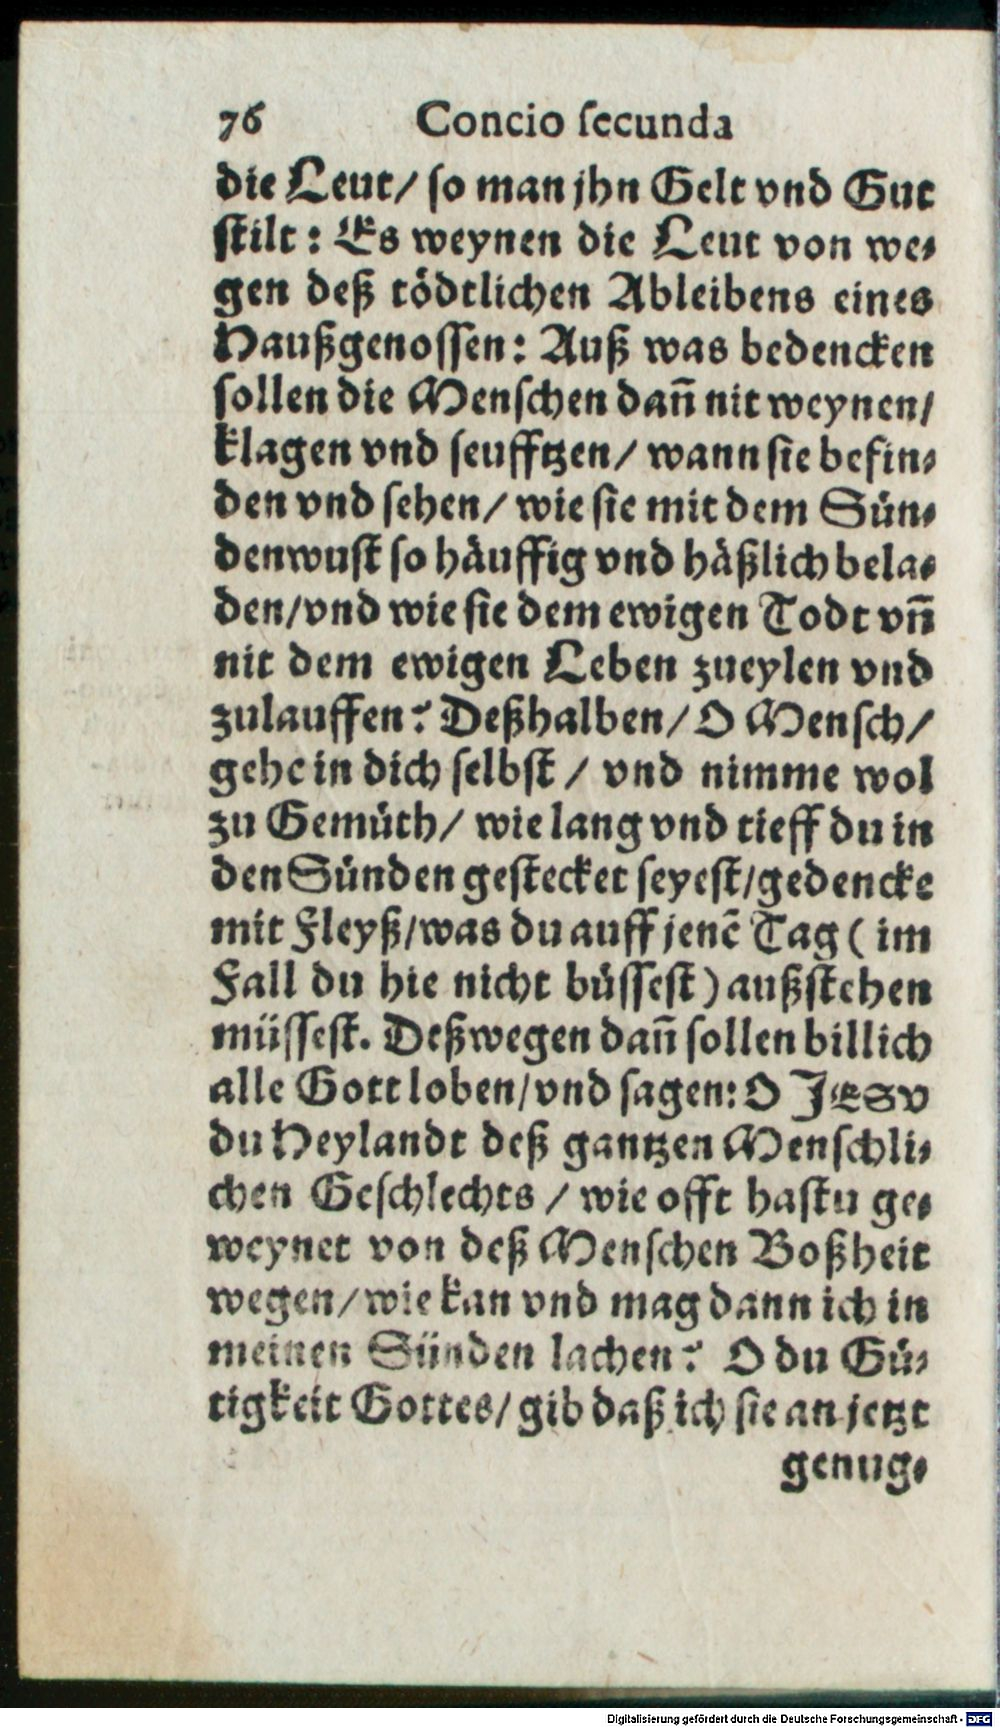 76 Concio secunda
die Leut/ so man jhn Gelt vnd Gut
stilt: Es weynen die Leut von we-
gen deß tödtlichen Ableibens eines
Haußgenossen: Auß was bedencken
sollen die Menschen dañ nit weynen/
klagen vnd seufftzen/ wann sie befin-
den vnd sehen/ wie sie mit dem Sün-
denwust so häuffig vnd häßlich bela-
den/vnd wie sie dem ewigen Todt vñ
nit dem ewigen Leben zueylen vnd
zulauffen? Deßhalben/ O Mensch/
gehe in dich selbst / vnd nimme wol
zu Gemüth/ wie lang vnd tieff du in
den Sünden gestecket seyest/gedencke
mit Fleyß/was du auff jenẽ Tag ( im
Fall du hie nicht büssest) außstehen
müssest. Deßwegen dañ sollen billich
alle Gott loben/vnd sagen: O JESV
du Heylandt deß gantzen Menschli-
chen Geschlechts / wie offt hastu ge-
weynet von deß Menschen Boßheit
wegen/wie kan vnd mag dann ich in
meinen Sünden lachen? O du Gü-
tigkeit Gottes/ gib daß ich sie an jetzt
genug-
Digitalisierung gefördert durch die Deutsche Forschungsgemeinschaft - DFG